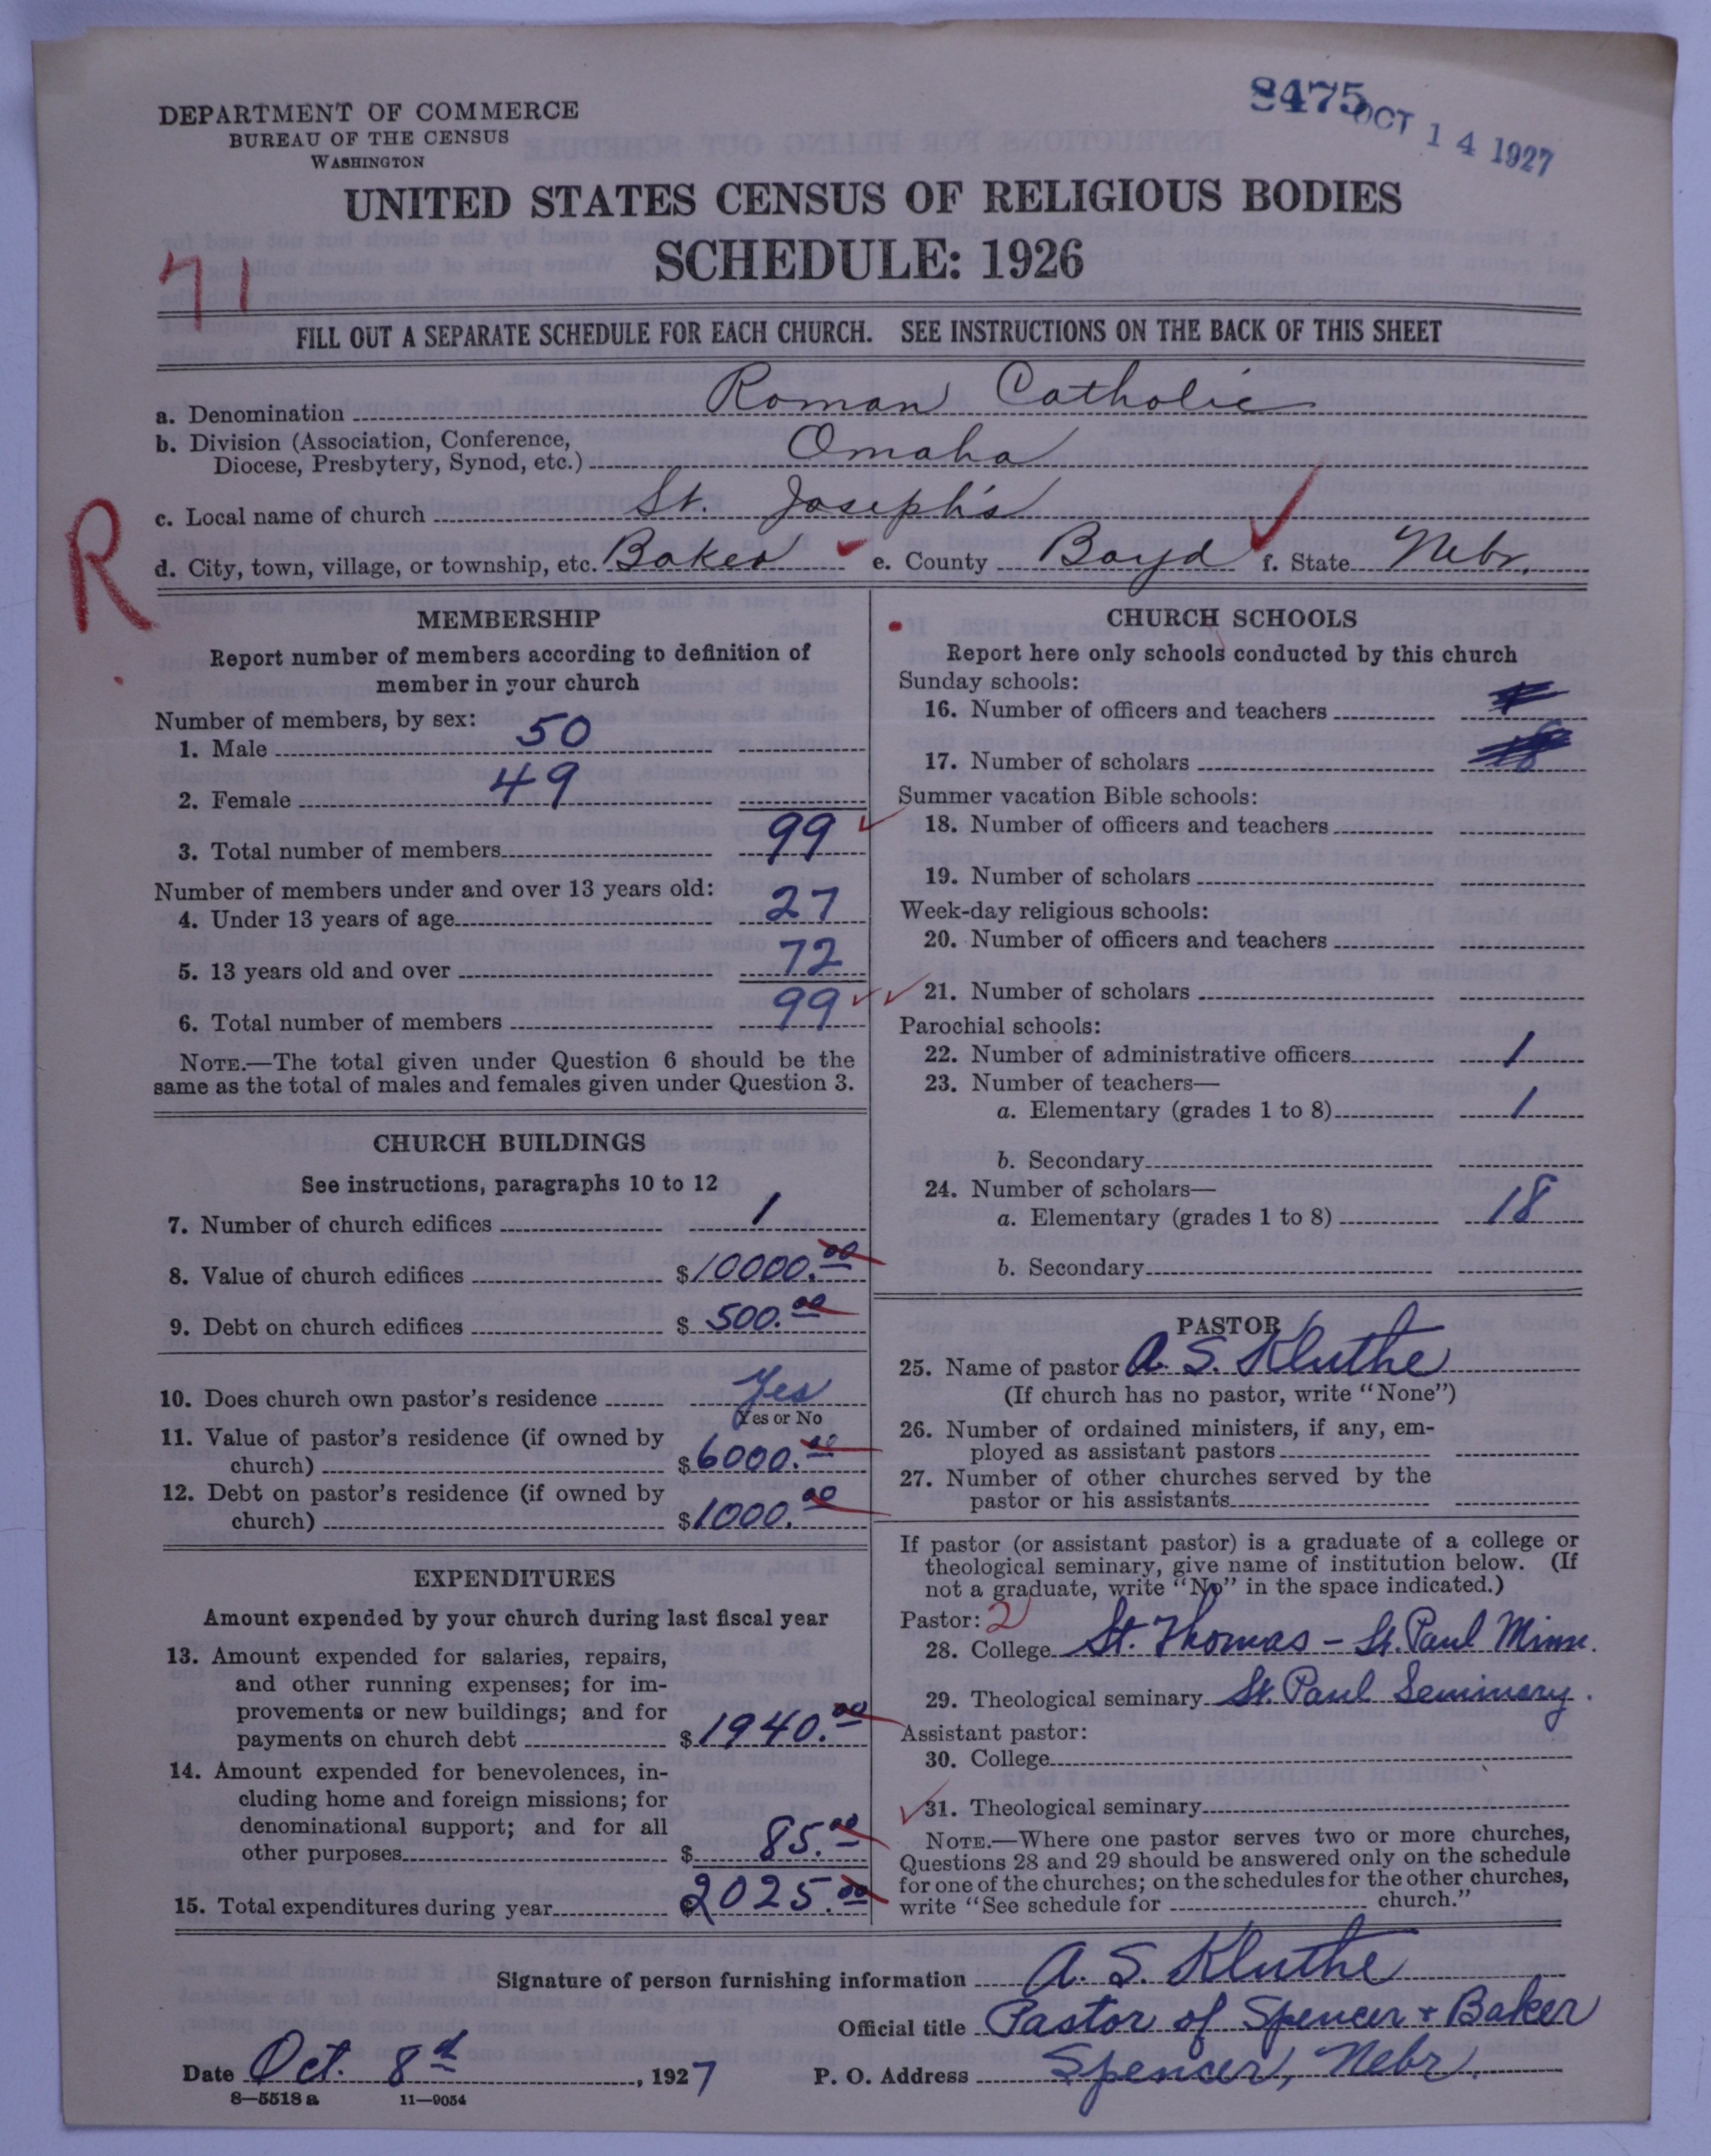 DEPARTMENT OF COMMERCE
BUREAU OF THE CENSUS
WASHINGTON
8475
OCT 14 1927
UNITED STATES CENSUS OF RELIGIOUS BODIES
SCHEDULE: 1926
71
FILL OUT A SEPARATE SCHEDULE FOR EACH CHURCH. SEE INSTRUCTIONS ON THE BACK OF THIS SHEET
a. Denomination Roman Catholic
b. Division (Association, Conference,
Diocese, Presbytery, Synod, etc.) Omaha
c. Local name of church St. Joseph's
R
d. City, town, village, or township, etc. Baker e. County Boyd f. State Nebr.
MEMBERSHIP
Report number of members according to definition of
member in your church
Number of members, by sex:
1. Male 50
2. Female 49
3. Total number of members 99
Number of members under and over 13 years old:
4. Under 13 years of age 27
5. 13 years old and over 72
6. Total number of members 99
NOTE.—The total given under Question 6 should be the
same as the total of males and females given under Question 3.
CHURCH BUILDINGS
See instructions, paragraphs 10 to 12
7. Number of church edifices 1
8. Value of church edifices $10000.00
9. Debt on church edifices $ 500.00
10. Does church own pastor's residence Yes
Yes or No
11. Value of pastor's residence (if owned by
church) $6000.00
12. Debt on pastor's residence (if owned by
church) $1000.00
EXPENDITURES
Amount expended by your church during last fiscal year
13. Amount expended for salaries, repairs,
and other running expenses; for im-
provements or new buildings; and for
payments on church debt $1940.00
14. Amount expended for benevolences, in-
cluding home and foreign missions; for
denominational support; and for all
other purposes $ 85.00
15. Total expenditures during year $2025.00
CHURCH SCHOOLS
Report here only schools conducted by this church
Sunday schools:
16. Number of officers and teachers
17. Number of scholars
Summer vacation Bible schools:
18. Number of officers and teachers
19. Number of scholars
Week-day religious schools:
20. Number of officers and teachers
21. Number of scholars
Parochial schools:
22. Number of administrative officers 1
23. Number of teachers—
a. Elementary (grades 1 to 8) 1
b. Secondary
24. Number of scholars—
a. Elementary (grades 1 to 8) 18
b. Secondary
PASTOR
25. Name of pastor A. S. Kluthe
(If church has no pastor, write "None")
26. Number of ordained ministers, if any, em-
ployed as assistant pastors
27. Number of other churches served by the
pastor or his assistants
If pastor (or assistant pastor) is a graduate of a college or
theological seminary, give name of institution below. (If
not a graduate, write "No" in the space indicated.)
Pastor: 2
28. College St. Thomas – St. Paul Minn.
29. Theological seminary St. Paul Seminary.
Assistant pastor:
30. College
31. Theological seminary
NOTE.—Where one pastor serves two or more churches,
Questions 28 and 29 should be answered only on the schedule
for one of the churches; on the schedules for the other churches,
write "See schedule for church."
Signature of person furnishing information A. S. Kluthe
Official title Pastor of Spencer + Baker
Date Oct. 8th, 1927 P. O. Address Spencer, Nebr.
8—5518 a 11—9054